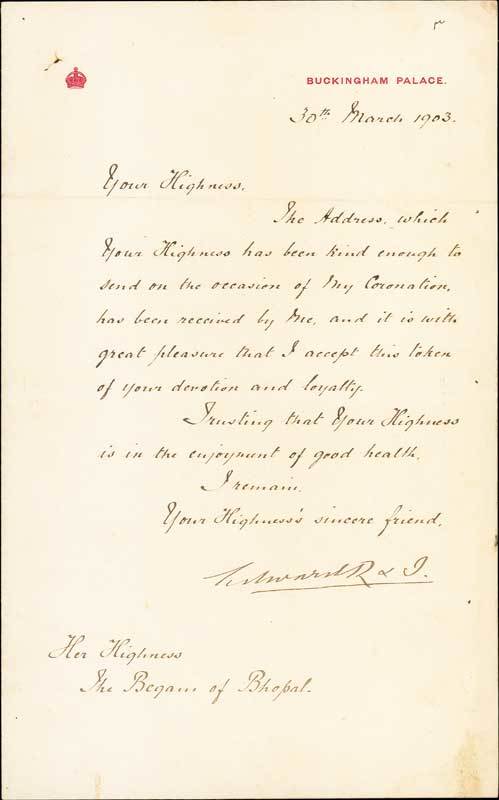 ٣
BUCKINGHAM PALACE.
30th March 1903.
Your Highness,
The Address, which
Your Highness has been kind enough to
send on the occasion of My Coronation,
has been received by Me, and it is with
great pleasure that I accept this token
of your devotion and loyalty.
Trusting that Your Highness
is in the enjoyment of good health,
I remain,
Your Highness's sincere friend,
Edward R & I.
Her Highness
The Begam of Bhopal.